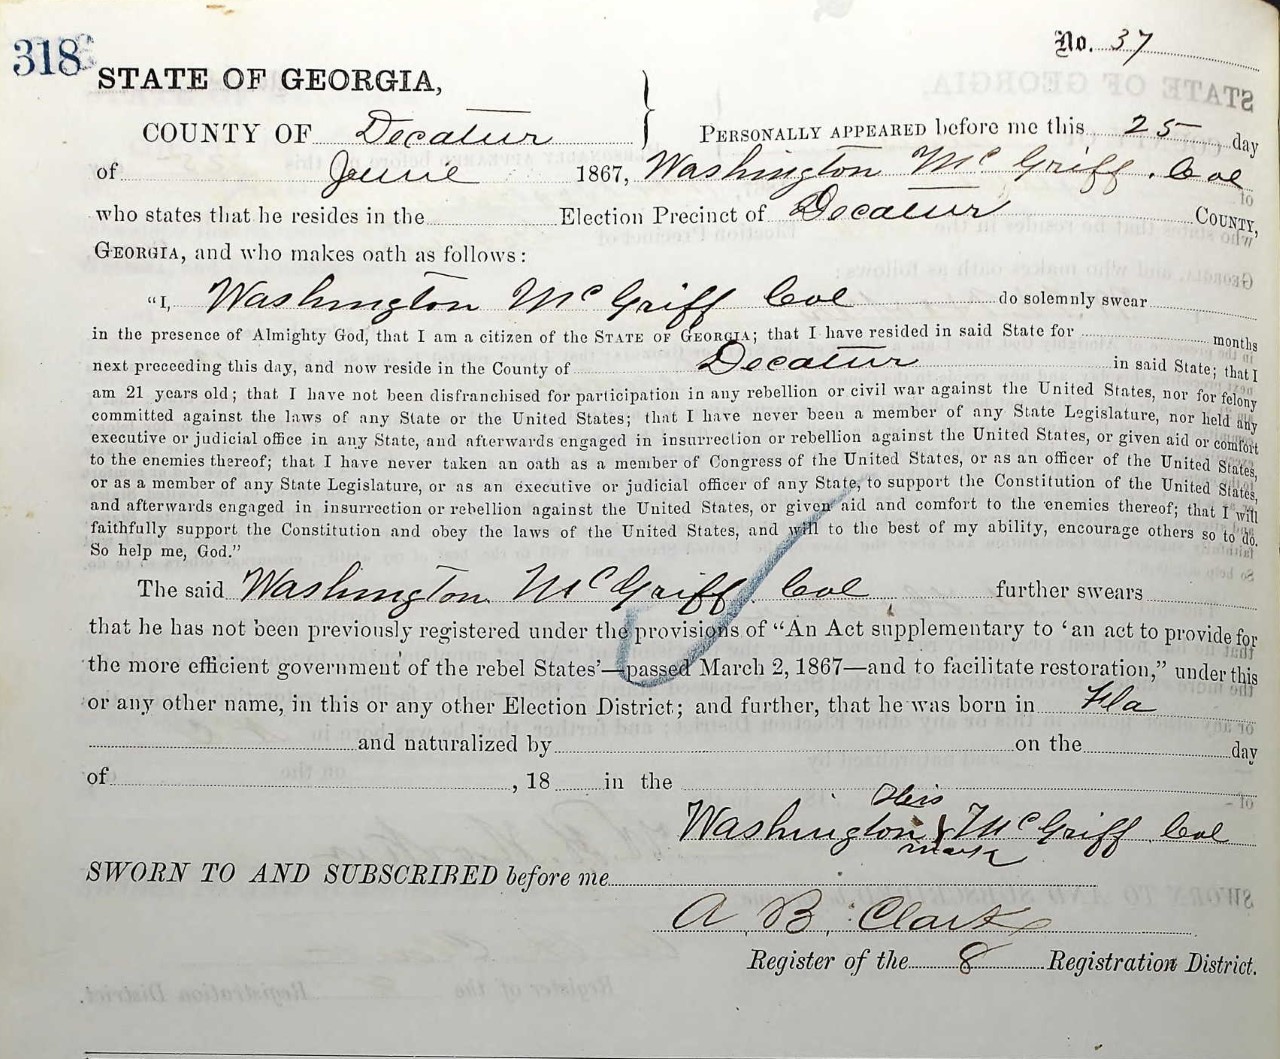 318
No. 37
STATE OF GEORGIA,
COUNTY OF Decatur
PERSONALLY APPEARED before me this 25 day
of June 1867, Washington McGriff. Col
who states that he resides in the Election Precinct of Decatur COUNTY,
GEORGIA, and who makes oath as follows:
"I, Washington McGriff Col do solemnly swear
in the presence of Almighty God, that I am a citizen of the STATE OF GEORGIA; that I have resided in said State for months
next preceeding this day, and now reside in the County of Decatur in said State; that I
am 21 years old; that I have not been disfranchised for participation in any rebellion or civil war against the United States, nor for felony
committed against the laws of any State or the United States; that I have never been a member of any State Legislature, nor held any
executive or judicial office in any State, and afterwards engaged in insurrection or rebellion against the United States, or given aid or comfort
to the enemies thereof; that I have never taken an oath as a member of Congress of the United States, or as an officer of the United States,
or as a member of any State Legislature, or as an executive or judicial officer of any State, to support the Constitution of the United States,
and afterwards engaged in insurrection or rebellion against the United States, or given aid and comfort to the enemies thereof; that I will
faithfully support the Constitution and obey the laws of the United States, and will to the best of my ability, encourage others so to do.
So help me, God."
The said Washington McGriff Col further swears
that he has not been previously registered under the provisions of "An Act supplementary to 'an act to provide for
the more efficient government of the rebel States'—passed March 2, 1867—and to facilitate restoration," under this
or any other name, in this or any other Election District; and further, that he was born in Fla
and naturalized by on the day
of , 18 in the
His
Washington McGriff Col
mark
SWORN TO AND SUBSCRIBED before me
A. B. Clark
Register of the 8 Registration District.